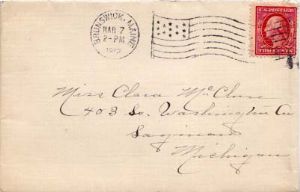 BRUNSWICK, MAINE
MAR 7
2-PM
U.S. POSTAGE
TWO CENTS
Miss Clara McClure
403 So. Washington
Saginaw
Michigan